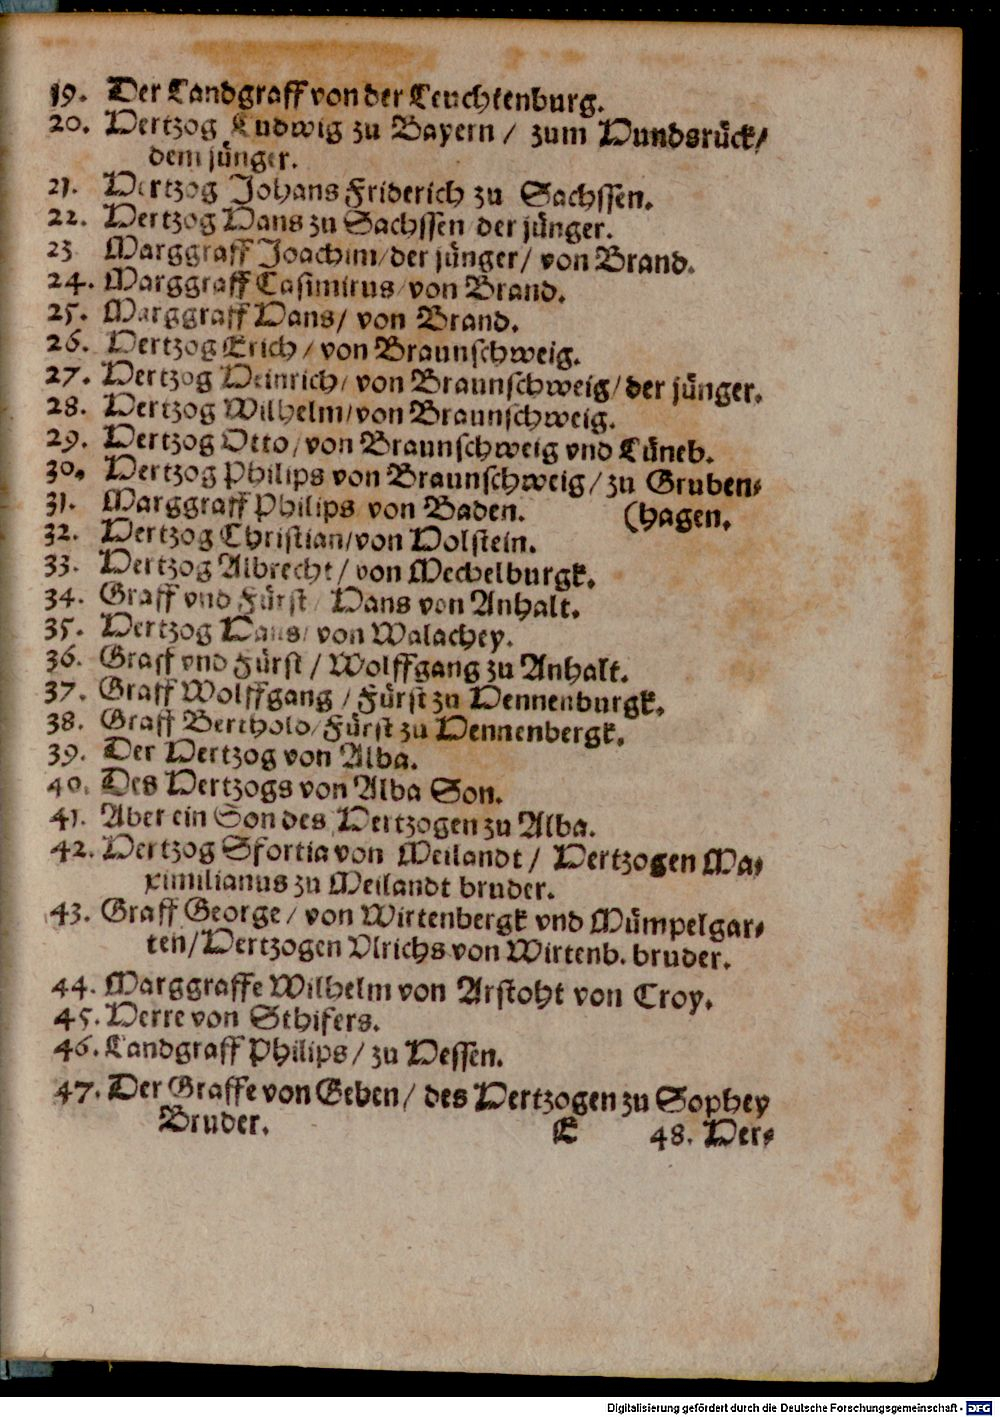 19. Der Landgraff von der Leuchtenburg.
20. Hertzog Ludwig zu Bayern / zum Hundsrück/
dem jünger.
21. Hertzog Johans Friderich zu Sachssen.
22. Hertzog Hans zu Sachssen der jünger.
23 Marggraff Joachim/der jünger/ von Brand.
24. Marggraff Casimirus/von Brand.
25. Marggraff Hans/ von Brand.
26. Hertzog Erich / von Braunschweig.
27. Hertzog Heinrich/ von Braunschweig/der jünger.
28. Hertzog Wilhelm/von Braunschweig.
29. Hertzog Otto/von Braunschweig vnd Lüneb.
30. Hertzog Philips von Braunschweig/zu Gruben-
31. Marggraff Philips von Baden. (hagen.
32. Hertzog Christian/von Holstein.
33. Hertzog Albrecht/von Mechelburgk.
34. Graff vnd Fürst / Hans von Anhalt.
35. Hertzog Hans/ von Walachey.
36. Graff vnd Fürst / Wolffgang zu Anhalt.
37. Graff Wolffgang / Fürst zu Hennenburgk.
38. Graff Berthold/Fürst zu Hennenbergk.
39. Der Hertzog von Alba.
40. Des Hertzogs von Alba Son.
41. Aber ein Son des Hertzogen zu Alba.
42. Hertzog Sfortia von Meilandt / Hertzogen Ma-
ximilianus zu Meilandt bruder.
43. Graff George / von Wirtenbergk vnd Mümpelgar-
ten/Hertzogen Vlrichs von Wirtenb. bruder.
44. Marggraffe Wilhelm von Arstoht von Croy.
45. Herre von Sthifers.
46. Landgraff Philips / zu Hessen.
47. Der Graffe von Geben/ des Hertzogen zu Sophey
Bruder. E 48. Her-
Digitalisierung gefördert durch die Deutsche Forschungsgemeinschaft - DFG